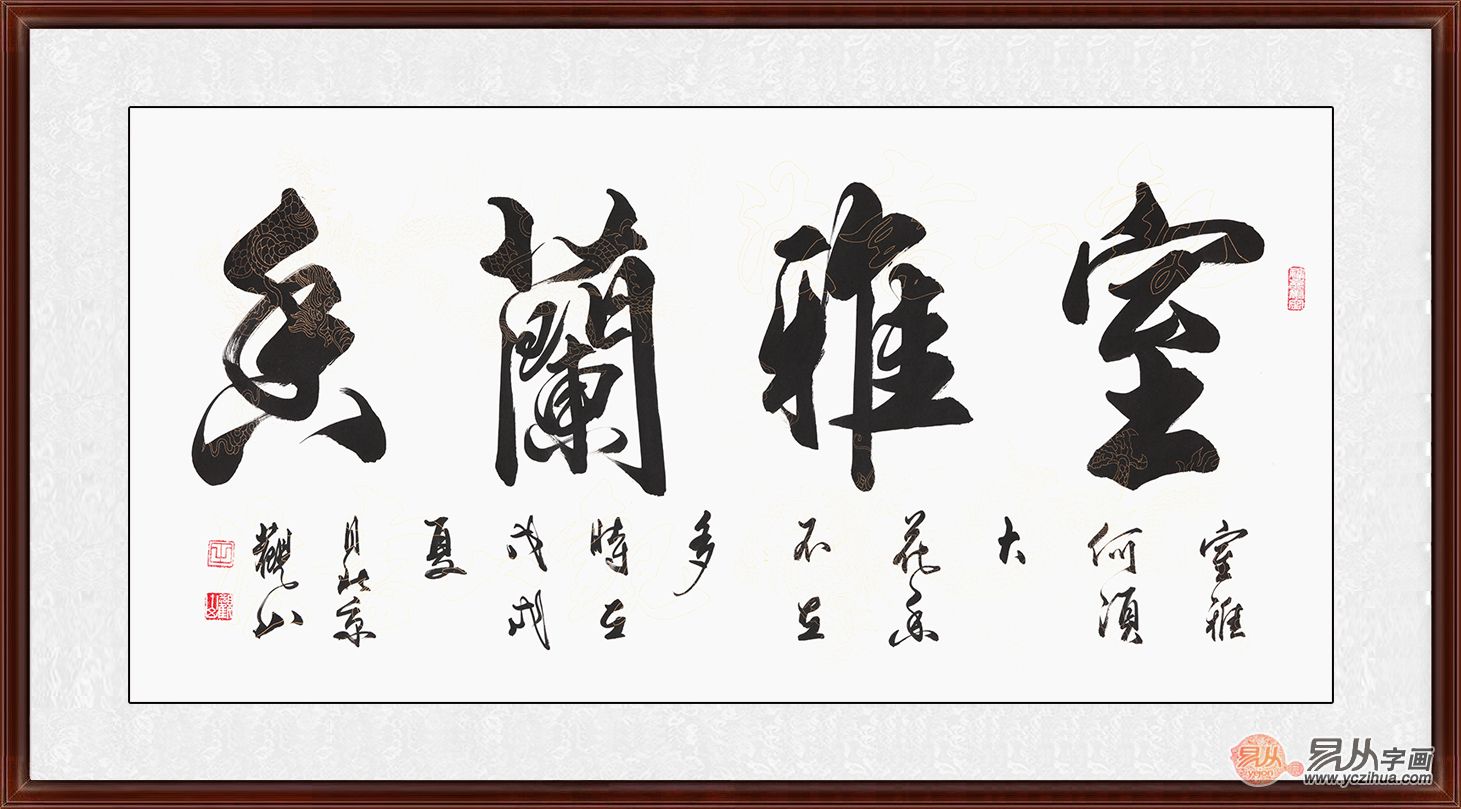 室雅蘭香
室雅
何須
大
花香
不在
多
時在
戊戌
夏
月北京
觀山
易从
易从字画
www.yczihua.com